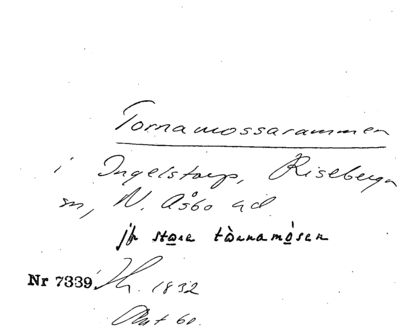 Tornamossarammen
i Ingelstorp, Riseberga
sn, N. Åsbo hd
jfr stoɹe tòɹnamòsen
Nr 7339 Th. 1832
Akt 60.